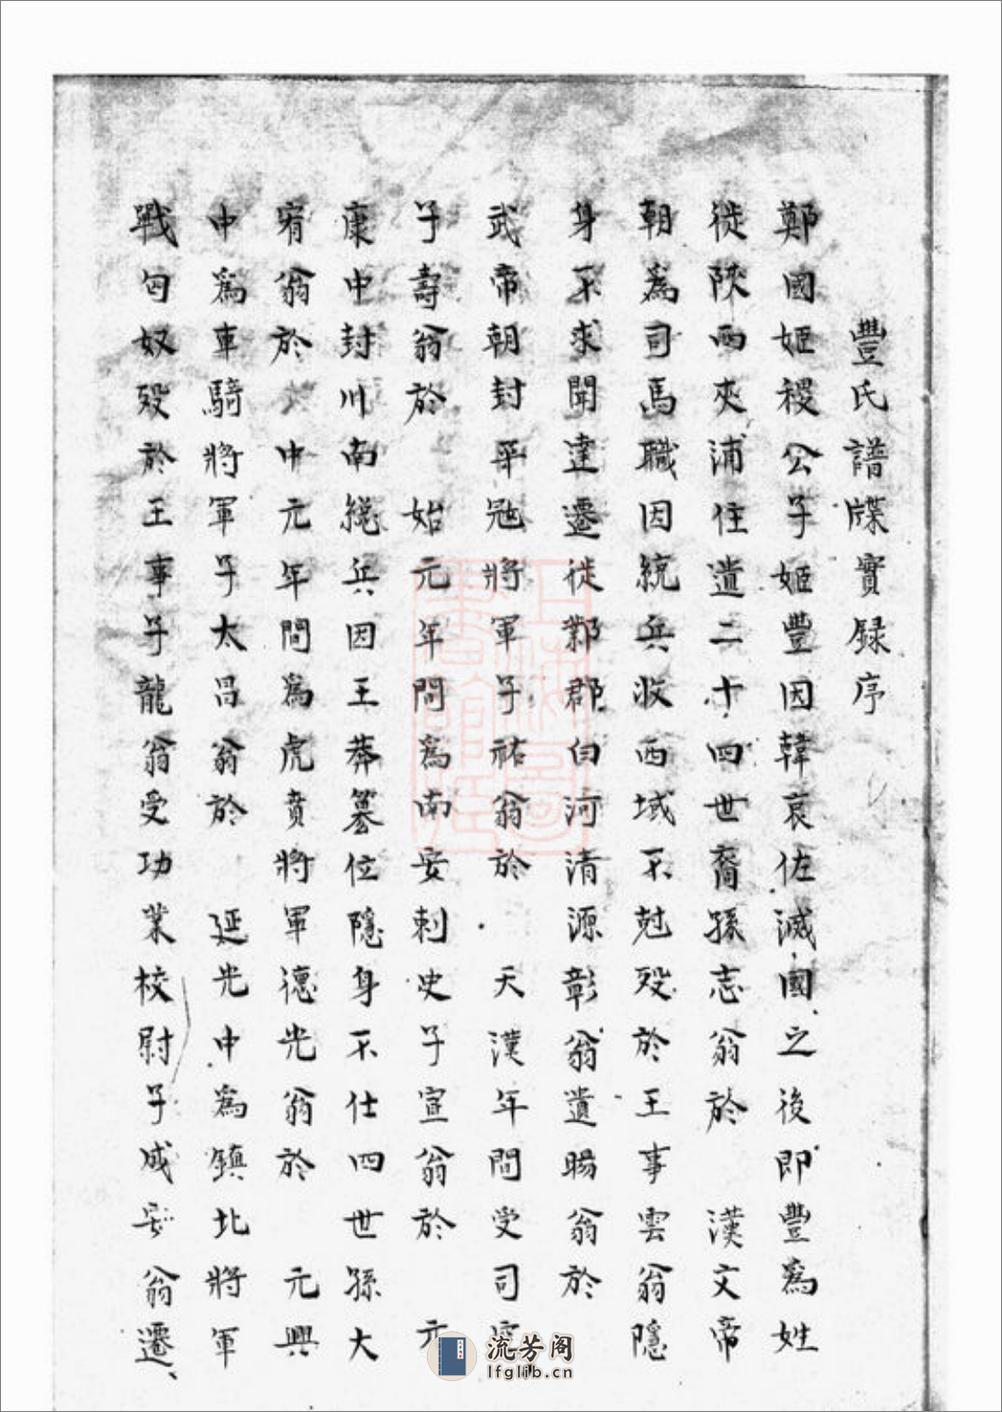 豐氏譜牒實録序
鄭國姬稷公子姬豐因韓哀侯滅國之後即豐爲姓
徙陝西夾浦住遺二十四世裔孫志翁於 漢文帝
朝爲司馬職因統兵收西域不尅殁於王事雲翁隱
身不求聞達遷徙鄴郡白河清源彰翁遺暘翁於
武帝朝封平冦將軍子祐翁於 天漢年間受司
子壽翁於 始元年間爲南安刺史子宣翁於 元
康中封川南統兵因王莽篡位隱身不仕四世孫大
宥翁於 中元年間爲虎賁將軍德光翁於 元興
中爲車騎將軍子太昌翁於 延光中爲鎮北將軍
戰匈奴殁於王事子龍翁受功業校尉子成安翁遷
流芳阁
lfglib.cn